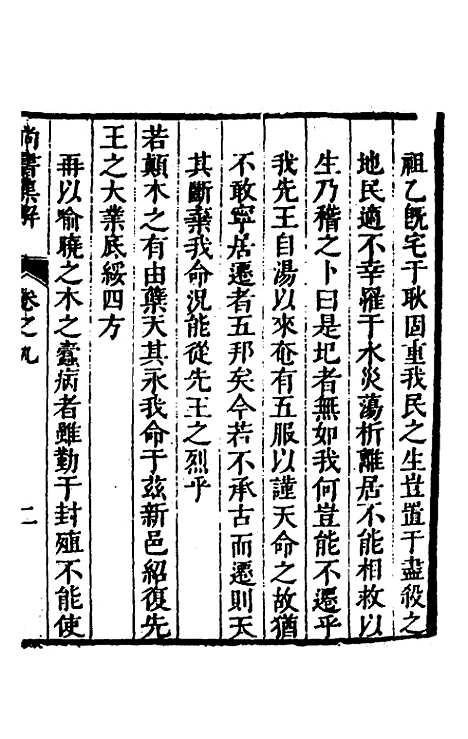 祖乙旣宅于耿固重我民之生豈置于盡殺之
地民適不幸罹于水災蕩析離居不能相救以
生乃稽之卜曰是圮者無如我何豈能不遷乎
我先王自湯以來奄有五服以謹天命之故猶
不敢寧居遷者五邦矣今若不承古而遷則天
其斷棄我命況能從先王之烈乎
若顛木之有由櫱天其永我命于茲新邑紹復先
王之大業底綏四方
再以喻曉之木之蠹病者雖勤于封殖不能使
尚書集解
卷之九
二